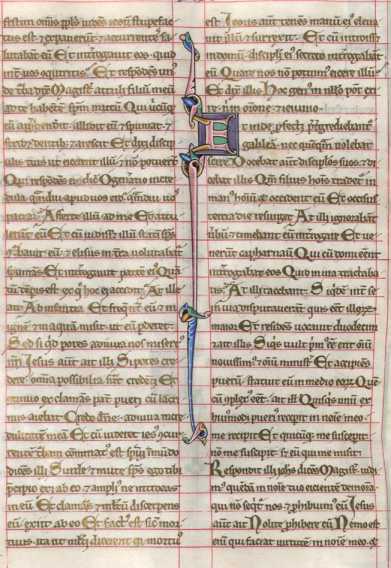 statim omis pls uidens iesum stupefac
tus est & expauerunt & accurrentes sa
lutabant eū Et introgauit eos quid
int uos cqritis Et respōdens un
de turba dix Magist attuli filiū meū
ad te habentē spm mutū Qui ubicūq
eū appndit allidit eū & spumat &
stridet dentib & arescit Et dixi discip
ulis tuis ut eicerent illū & nō potuerūt
Qui respōdens eis dix O gnatio incre
dula qmdiu apud uos ero qmdiu uos
patiar Afferte illū ad me Et attu
lerūt eū Et cū uidisset illū statī sps
ɔturbauit eū & elisus in trā uolutabat
spumās Et introgauit patrē ei Qntū
tēpis est ex q hoc ei accidit At ille
ait Ab infantia Et freqnt eū & in
ignē & in aquas misit ut eū pderet
Sed si qd potes adiuua nos miserts
nri Iesus aut ait illi Si potes cre
dere omia possibilia sunt credenti Et
ɔtinuo exclamās pat pueri cū lacri
mis aiebat Credo dne adiuua incre
dulitatē meā Et cū uideret ies ɔcur
rentē turbam cōminat est spui inmūdo
dicens illi Surde & mute sps ego tibi
pcipio exi ab eo & ampli ne introeas
in eū Et clamans & multū discerpens
eū exiit ab eo Et fact est sic mor
tuus ita ut multi dicerent qa mortuus
est Iesus aut tenens manū ei eleua
uit illū & surrexit Et cū introisset
in domū discipli ei secreto introgabāt
eū Quare nos nō potuim eicere illum
Et dix illis Hoc genus in nullo pot exi
re n in orone & ieiunio
Et inde pfecti ptgrediebant
galileā nec qmqm uolebat
scire Docebat aut discipulos suos & di
cebat illis Qm filius hois tradet in
man hoim & occident eū Et occisus
tertia die resurget At illi ignorabant
ubū & timebant eū introgare Et ue
nerunt capharnaū Qui cū domi eent
introgabat eos Quid in uia tractaba
tis At illi tacebant Siqdē int se
in uia disputauerunt quis eēt illoz
maior Et residens uocauit duodecim
& ait illis Siqs uult pm eē erit oim
nouissim & oim minist Et accipiens
puerū statuit eū in medio eorz Quē
cū cplex eēt ait illis Quisqs unū ex
huiusmodi pueris recepit in noie meo
me recipit Et quicūq me susceptit
nō me suscipit s eū qui me misit
Respondit illi iohs dicens Magist uidi
m quēdā in noie tuo eicientē demonia
qui nō seqt nos & phibuim eū Iesus
aut ait Nolite phibere eū Nemo est
eni qui faciat uirtutē in noie meo &